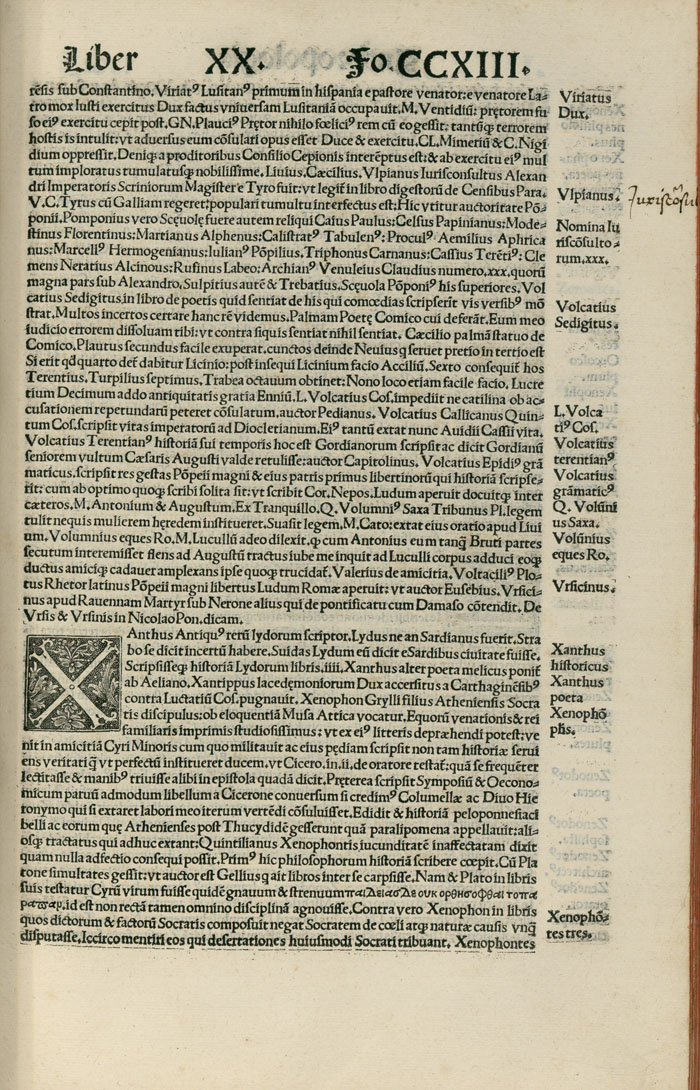 Liber XX. Fo. CCXIII.
rẽsis sub Constantino. Viriatꝰ Lusitanꝰ primum in hispania e pastore venator: e venatore La-
tro mox Iusti exercitus Dux factus vniuersam Lusitaniã occupauit. M. Ventidiũ: prętorem fu
so eiꝰ exercitu cepit post. GN. Plauciꝰ Prętor nihilo fœliciꝰ rem cũ eo gessit. tantũꝙ terrorem
hostis is intulit: vt aduersus eum cõsulari opus esset Duce & exercitu. CL. Mimeriũ & C. Nigi
dium oppressit. Deniqꝫ a proditoribus Consilio Cepionis interẽptus est: & ab exercitu eiꝰ mul
tum imploratus tumulatusqꝫ nobilissime. Liuius. Cæcilius. Vlpianus Iurisconsultus Alexan
dri Imperatoris Scriniorum Magister e Tyro fuit: vt legiť in libro digestorũ de Censibus Para.
V. C. Tyrus cũ Galliam regeret: populari tumultu interfectus est: Hic vtitur auctoritate Põ-
ponii. Pomponius vero Scęuolę fuere autem reliqui Caius Paulus: Celsus Papinianus: Mode-
stinus Florentinus: Martianus Alphenus: Calistratꝰ Tabulenꝰ: Proculꝰ Aemilius Aphrica
nus: Marcellꝰ Hermogenianus: Iulianꝰ Põpilius. Triphonus Carnanus: Cassius Terẽtiꝰ: Cle
mens Neratius Alcinous: Rufinus Labeo: Archianꝰ Venuleius Claudius numero. xxx. quorũ
magna pars sub Alexandro. Sulpitius autẽ & Trebatius. Scęuola Põponiꝰ his superiores. Vol
catius Sedigitus. in libro de poetis quid sentiat de his qui comœdias scripserũt vis versibꝰ mõ
strat. Multos incertos certare hanc rẽ videmus. Palmam Poetę Comico cui deferãt. Eum meo
iudicio errorem dissoluam tibi: vt contra siquis sentiat nihil sentiat. Cæcilio palmã statuo de
Comico. Plautus secundus facile exuperat. cunctos deinde Neuius q seruet pretio in tertio est
Si erit qd quarto deť dabitur Licinio: post insequi Licinium facio Acciliũ. Sexto consequiť hos
Terentius. Turpilius septimus. Trabea octauum obtinet: Nono loco etiam facile facio. Lucre
tium Decimum addo antiquitatis gratia Enniũ. L. Volcatius Cos. impediit ne catilina ob ac-
cusationem repetundarũ peteret cõsulatum. auctor Pedianus. Volcatius Callicanus Quin-
tum Cos. scripsit vitas imperatorũ ad Diocletianum. Eiꝰ tantũ extat nunc Auidii Cassii vita.
Volcatius Terentianꝰ historiã sui temporis hoc est Gordianorum scripsit ac dicit Gordianũ
seniorem vultum Cæsaris Augusti valde retulisse: auctor Capitolinus. Volcatius Epidiꝰ grã
maticus. scripsit res gestas Põpeii magni & eius patris primus libertinorũ qui historiã scripse-
rit: cum ab optimo quoqꝫ scribi solita sit: vt scribit Cor. Nepos. Ludum aperuit docuitqꝫ inter
cæteros. M. Antonium & Augustum. Ex Tranquillo. Q. Volumniꝰ Saxa Tribunus Pl. legem
tulit nequis mulierem hęredem institueret. Suasit legem. M. Cato: extat eius oratio apud Liui
um. Volumnius eques Ro. M. Lucullũ adeo dilexit. ꝙ cum Antonius eum tanꝗ̃ Bruti partes
secutum interemisset flens ad Augustũ tractus iube me inquit ad Luculli corpus adduci eoqꝫ
ductus amiciqꝫ cadauer amplexans ipse quoqꝫ trucidať. Valerius de amicitia. Voltaciliꝰ Plo-
tus Rhetor latinus Põpeii magni libertus Ludum Romæ aperuit: vt auctor Eusebius. Vrsici-
nus apud Rauennam Martyr sub Nerone alius qui de pontificatu cum Damaso cõtendit. De
Vrsis & Vrsinis in Nicolao Pon. dicam.
XAnthus Antiquꝰ rerũ lydorum scriptor. Lydus ne an Sardianus fuerit. Stra
bo se dicit incertũ habere. Suidas Lydum eũ dicit e Sardibus ciuitate fuisse.
Scripsisseqꝫ historiã Lydorum libris. iiii. Xanthus alter poeta melicus poniť
ab Aeliano. Xantippus lacedęmoniorum Dux accersitus a Carthaginẽsibꝰ
contra Luctatiũ Cos. pugnauit. Xenophon Grylli filius Atheniensis Socra
tis discipulus: ob eloquentiã Musa Attica vocatur. Equorũ venationis & rei
familiaris imprimis studiosissimus: vt ex eiꝰ litteris depræhendi potest: ve
nit in amicitiã Cyri Minoris cum quo militauit ac eius pędiam scripsit non tam historiæ serui
ens veritati ꝗ̃ vt perfectũ institueret ducem. vt Cicero. in. ii. de oratore testať: quã se frequẽter
lectitasse & manibꝰ triuisse alibi in epistola quadã dicit. Pręterea scripsit Symposiũ & Oecono-
micum paruũ admodum libellum a Cicerone conuersum si credimꝰ Columellæ ac Diuo Hie
ronymo qui si extaret labori meo iterum vertẽdi cõsuluisset. Edidit & historiã peloponnesiaci
belli ac eorum quę Athenienses post Thucydidẽ gesserunt quã paralipomena appellauit: ali-
osqꝫ tractatus qui adhuc extant: Quintilianus Xenophontis iucunditatẽ inaffectatam dixit
quam nulla adfectio consequi possit. Primꝰ hic philosophorum historiã scribere cœpit. Cũ Pla
tone simultates gessit: vt auctor est Gellius q ait libros inter se carpsisse. Nam & Plato in libris
suis testatur Cyrũ virum fuisse quidẽ gnauum & strenuum παιδειασ δε ουκ ορθησ οφθαι το πα
ραπαν. id est non rectã tamen omnino disciplinã agnouisse. Contra vero Xenophon in libris
quos dictorum & factorũ Socratis composuit negat Socratem de cœli atqꝫ naturæ causis vnꝗ̃
disputasse. Iccirco mentiri eos qui desertationes huiusmodi Socrati tribuant. Xenophontes
Viriatus
Dux.
Vlpianus.
Iurisco̅sul
Nomina Iu
riscõsulto-
rum. xxx.
Volcatius
Sedigitus.
L. Volca
tiꝰ Cos.
Volcatius
terentianꝰ
Volcatius
grãmaticꝰ
Q. Volũni
us Saxa.
Volũnius
eques Ro.
Vrsicinus.
Xanthus
historicus
Xanthus
poeta
Xenophõ
phs.
Xenophõ-
tes tres.